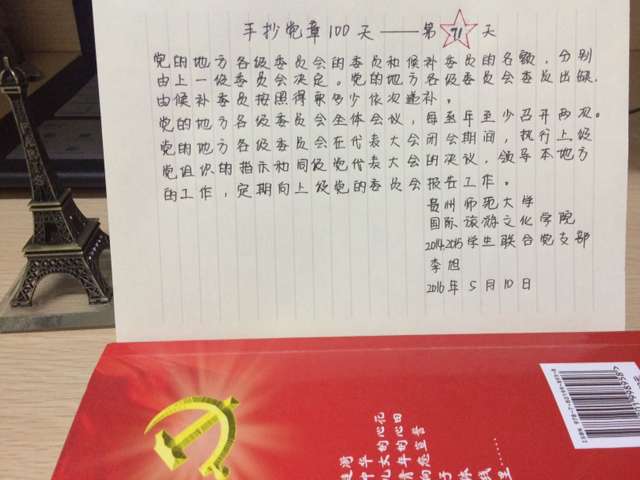 手抄党章100天——第71天
党的地方各级委员会的委员和候补委员的名额,分别
由上一级委员会决定。党的地方各级委员会委员出缺,
由候补委员按照得票多少依次递补。
党的地方各级委员会全体会议,每至年至少召开两次。
党的地方各级委员会在代表大会闭会期间,执行上级
党组织的指示和同级党代表大会的决议,领导本地方
的工作,定期向上级党的委员会报告工作。
贵州师范大学
国际旅游文化学院
2014,2015学生联合党支部
李旭
2016年5月10日
中华
儿女的心花
青年的心田